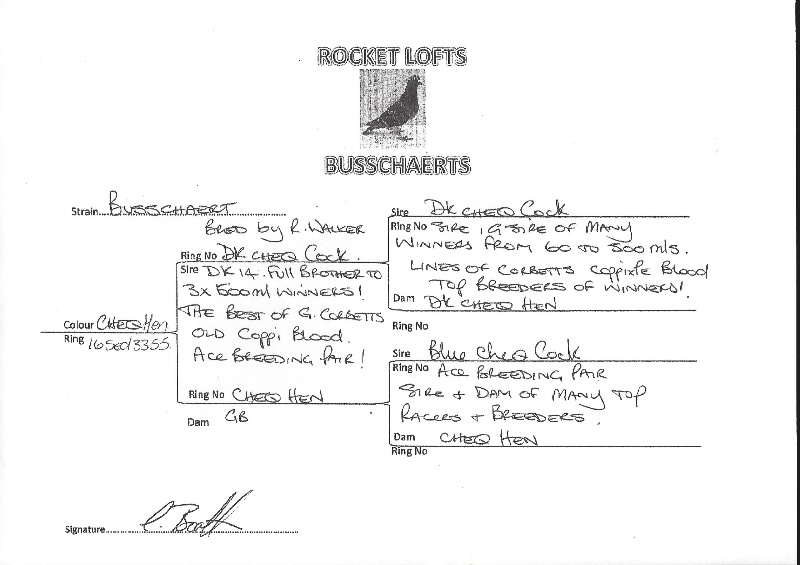 ROCKET LOFTS
BUSSCHAERTS
Strain BUSSCHAERT
BRED by R. WALKER
Ring No DK CHEQ COCK.
Sire DK 14. FULL BROTHER TO
3x 500ml WINNERS!
THE BEST OF G. CORBETTS
OLD COPPI BLOOD.
ACE BREEDING PAIR!
Colour CHEQ HEN
Ring 16SED13355
Ring No CHEQ HEN
Dam GB
Sire DK CHEQ COCK
Ring No SIRE, G SIRE OF MANY
WINNERS FROM 60 TO 500 mls.
LINES OF CORBETTS COPPI BLOOD
TOP BREEDERS OF WINNERS!
Dam DK CHEQ HEN
Ring No
Sire Blue CHEQ COCK
Ring No ACE BREEDING PAIR
SIRE + DAM OF MANY TOP
RACERS + BREEDERS.
Dam CHEQ HEN
Ring No
Signature